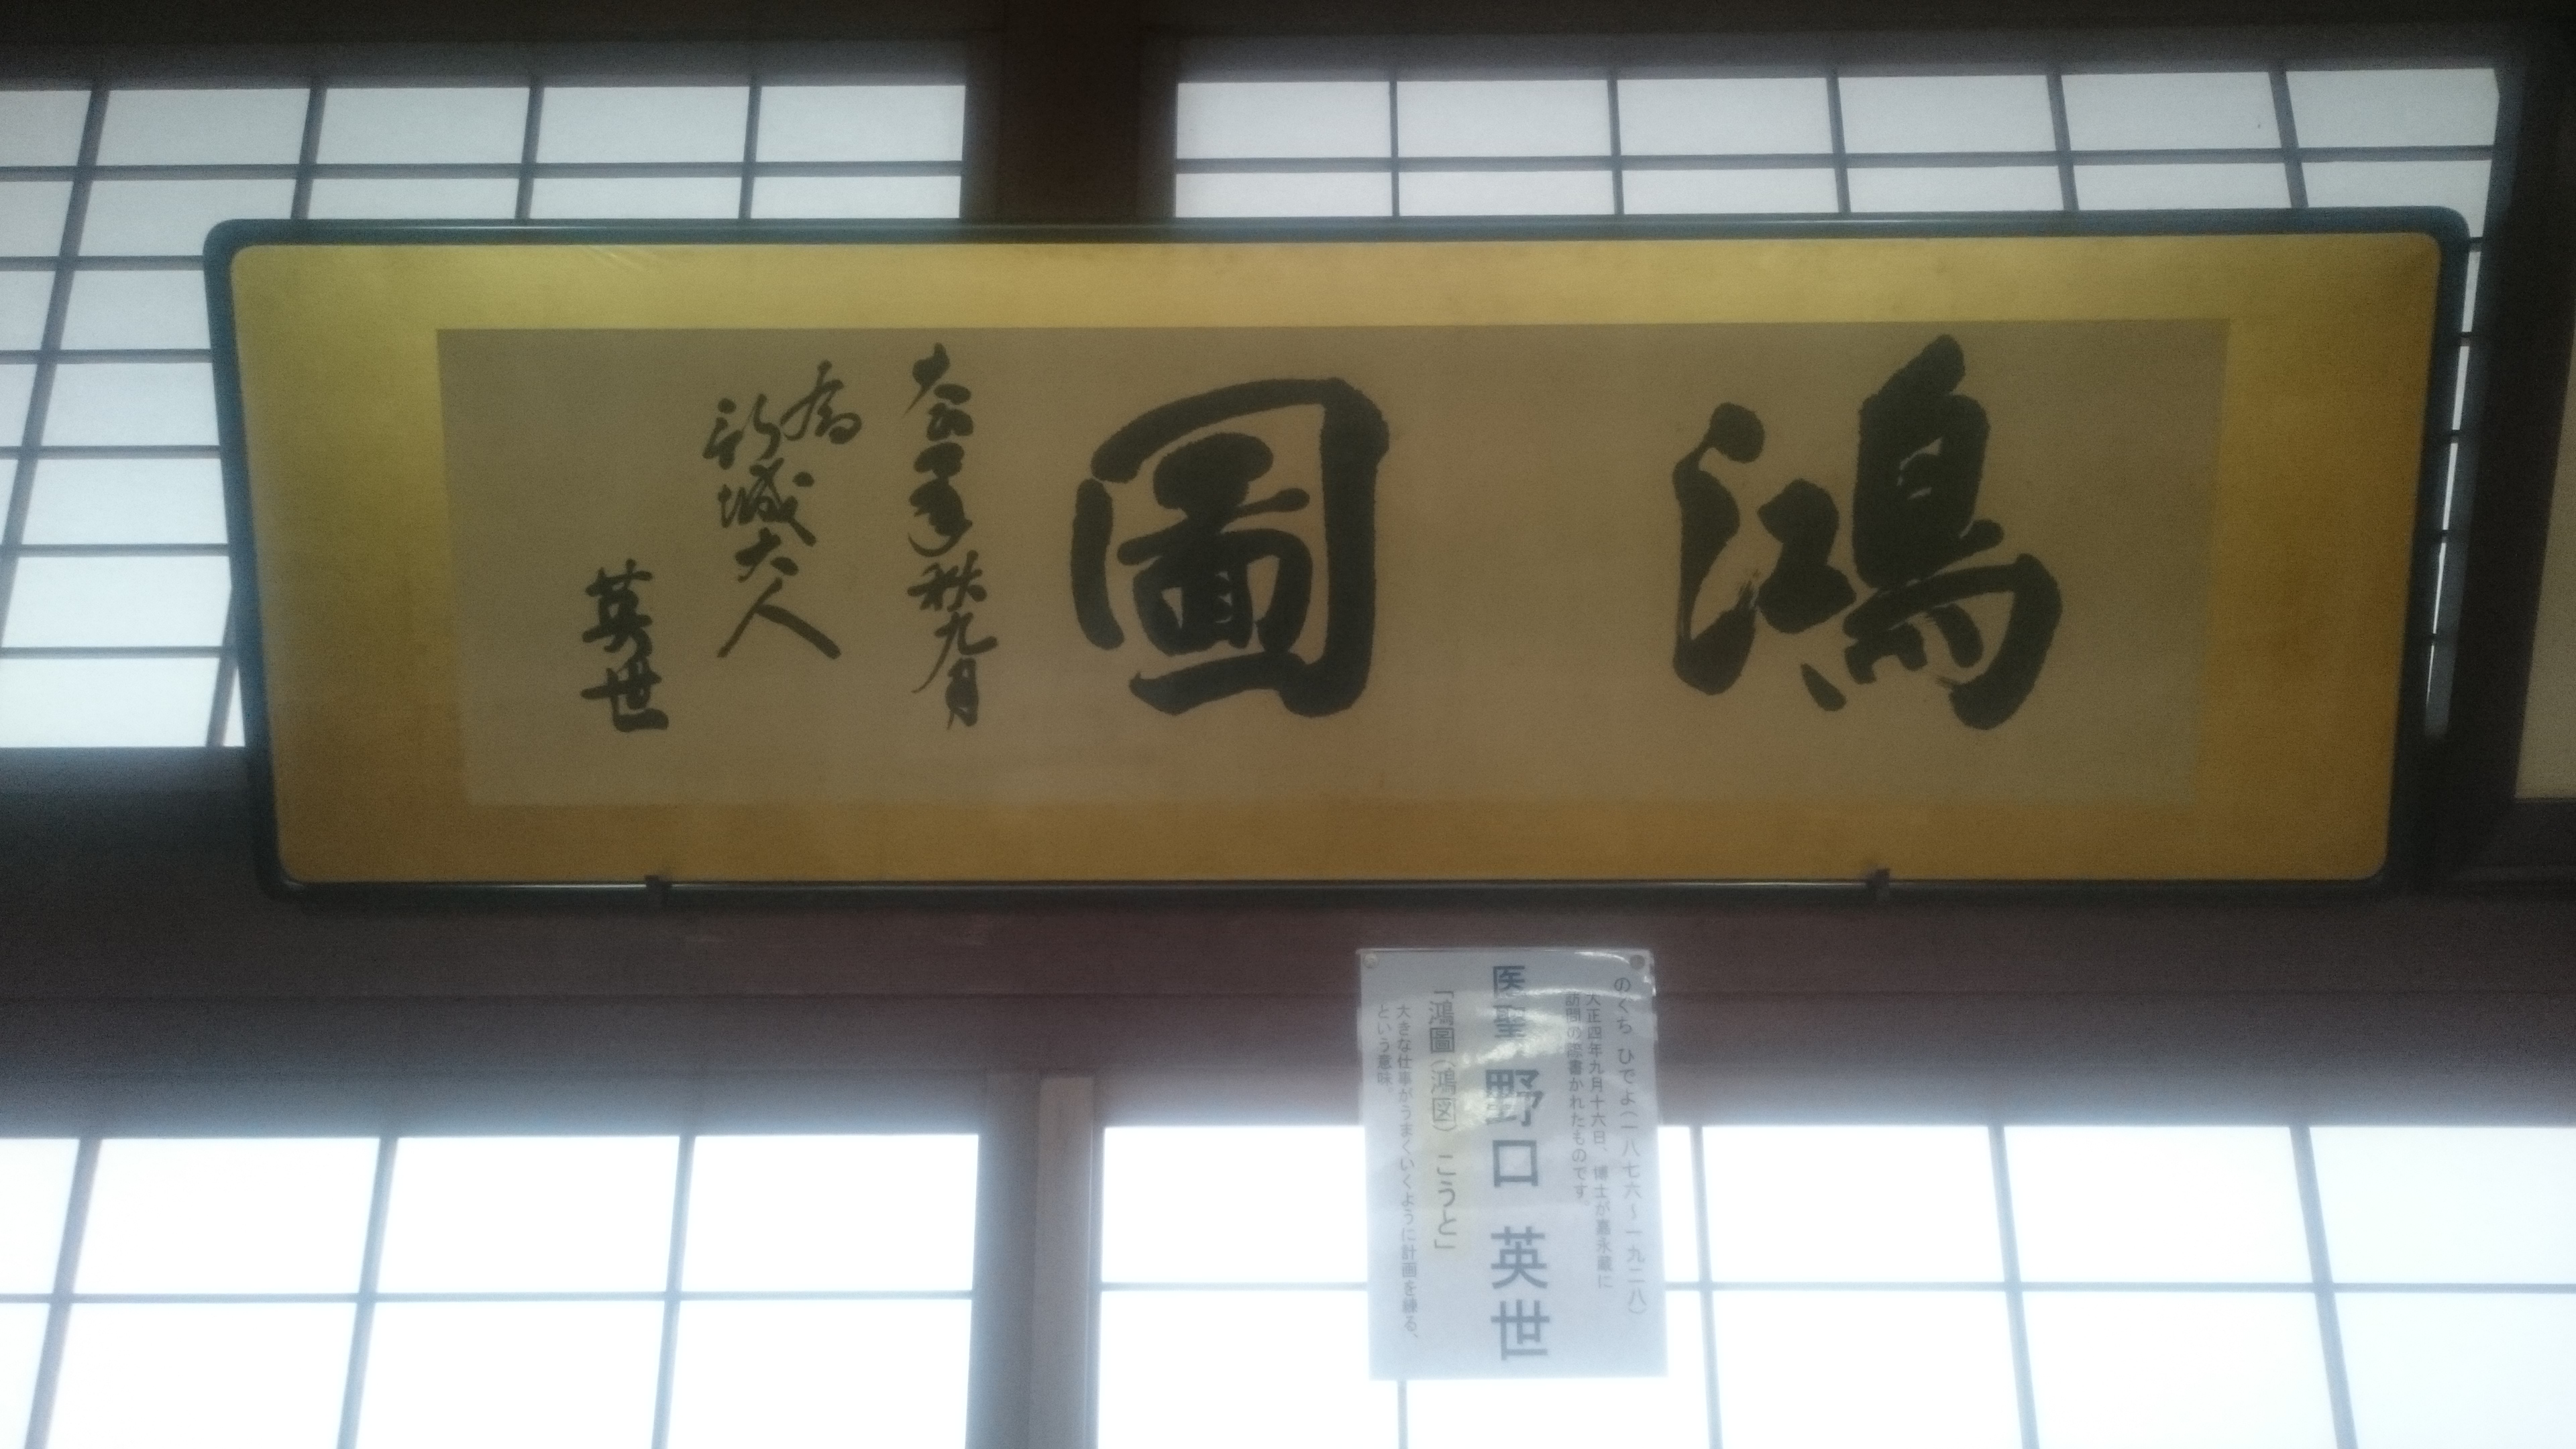 鴻圖
大正四年秋九月
為
新城大人
英世
のぐち ひでよ(一八七六〜一九二八)
大正四年九月十六日、博士が嘉永蔵に
訪問の際書かれたものです。
医聖 野口 英世
「鴻圖(鴻図) こうと」
大きな仕事がうまくいくように計画を練る、
という意味。